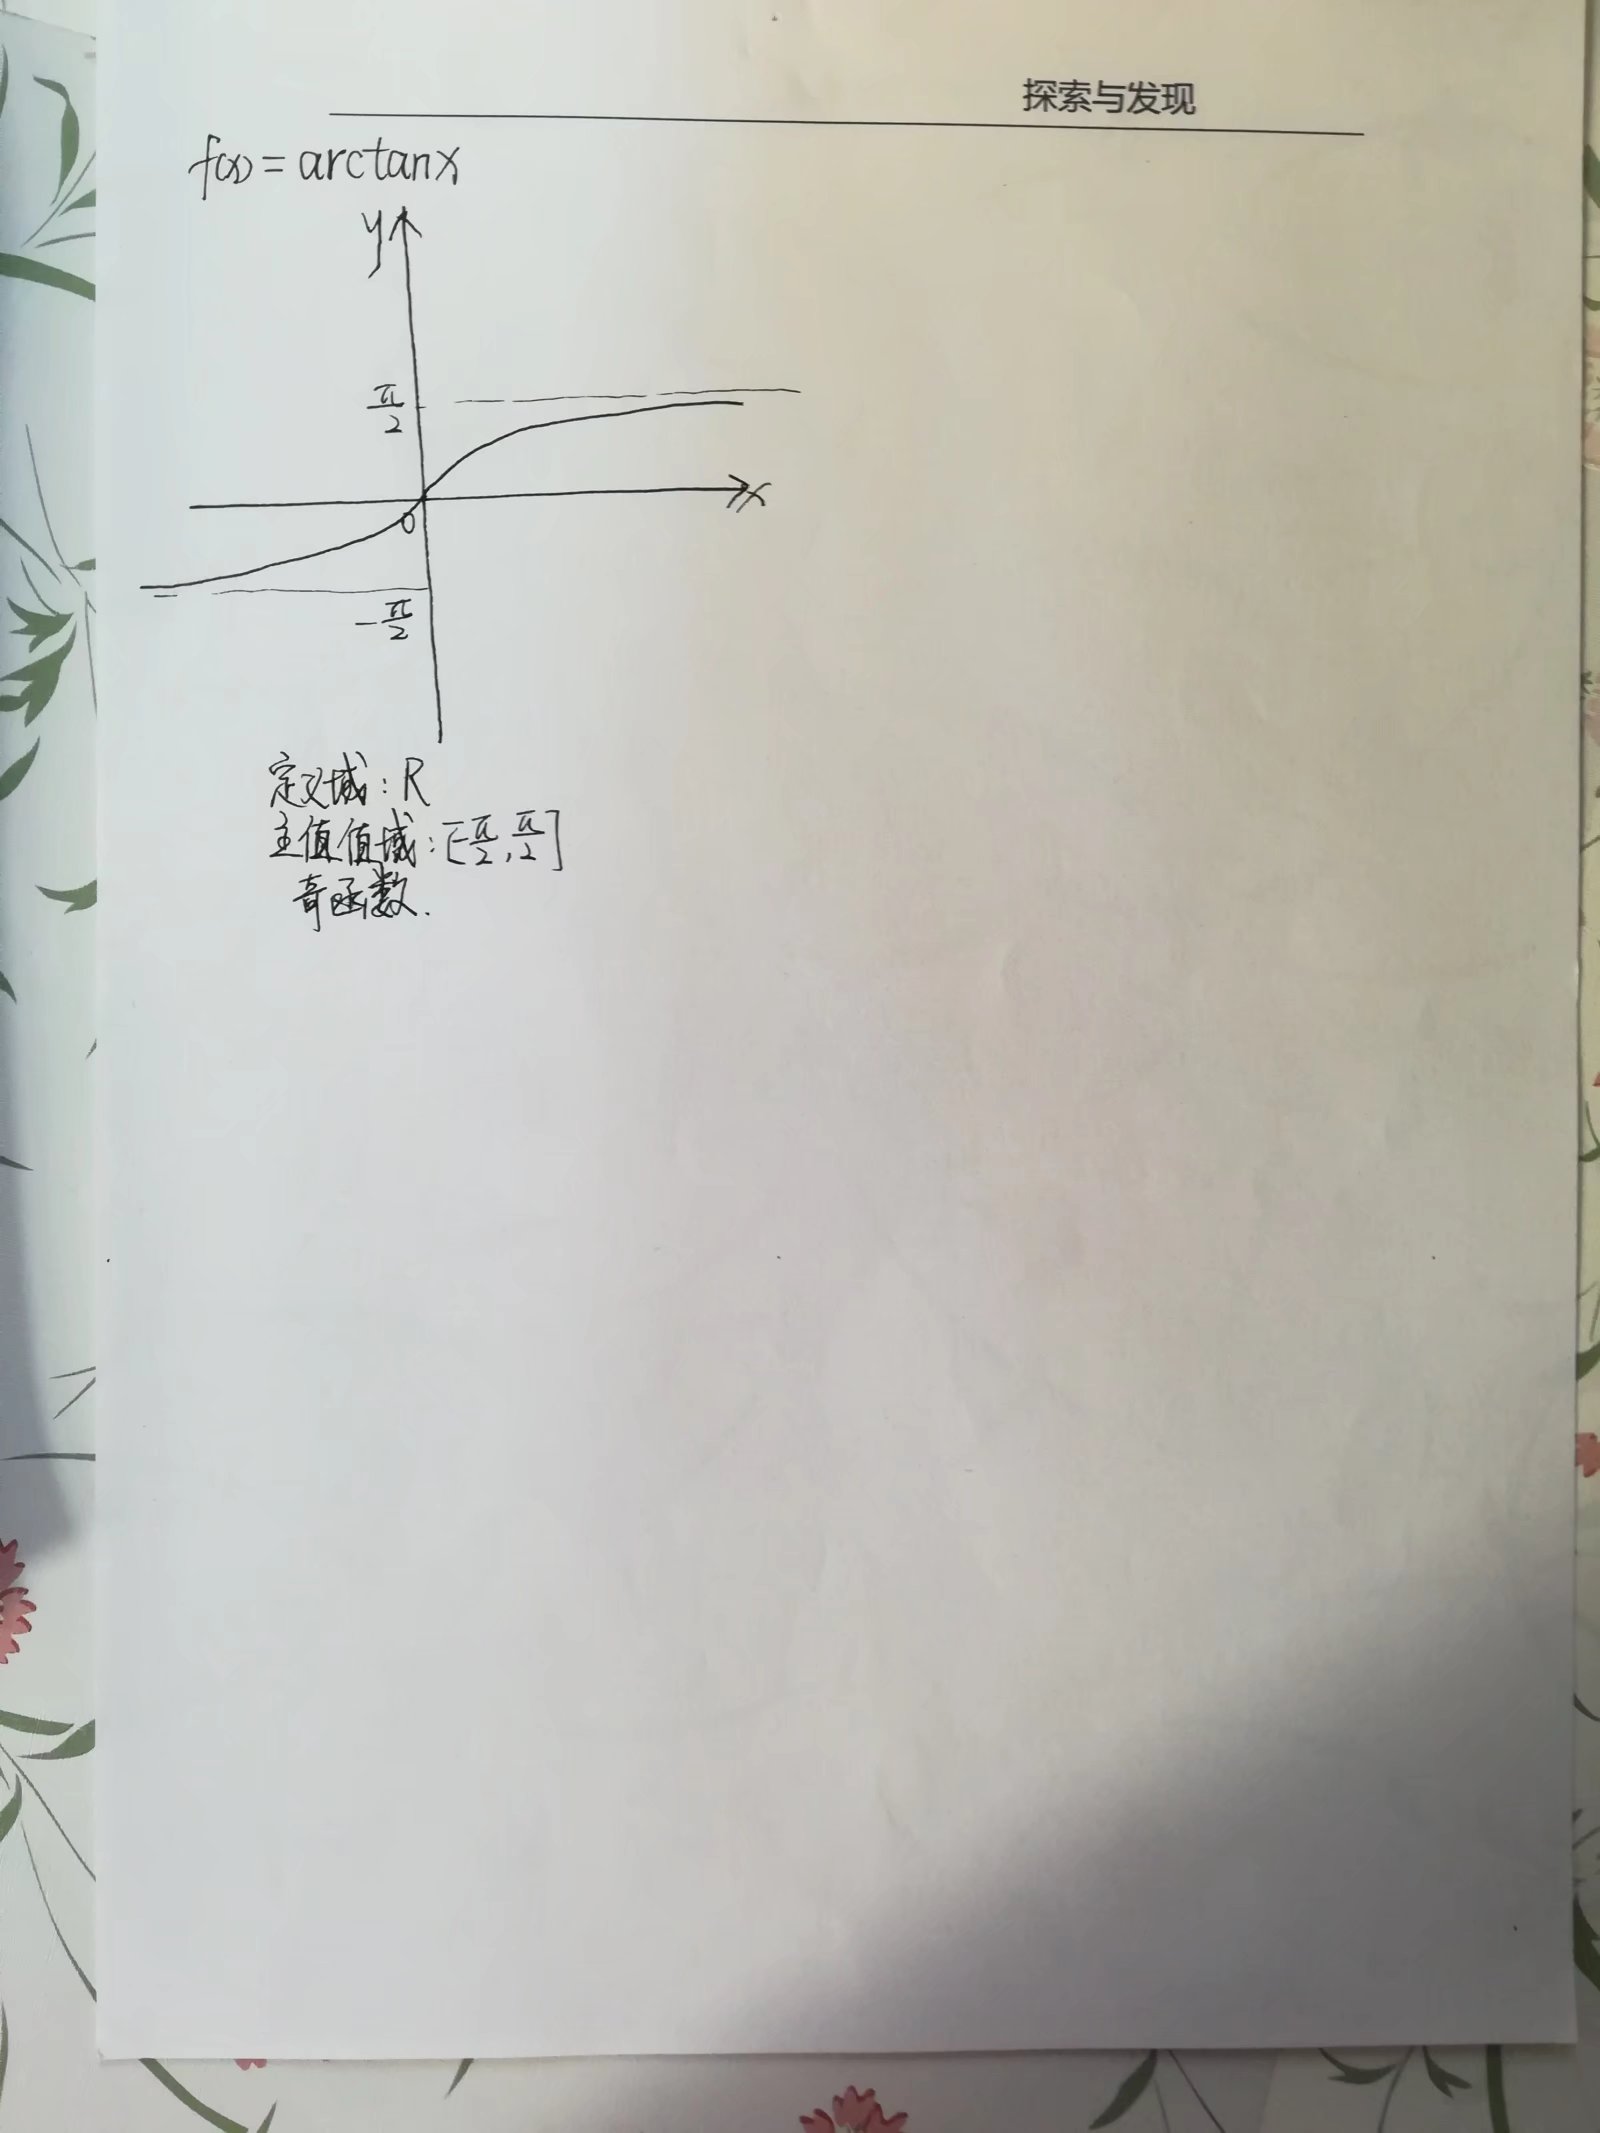 探索与发现
f(x) = arctanx
y
π/2
x
0
-π/2
定义域: R
主值值域: [-π/2, π/2]
奇函数.